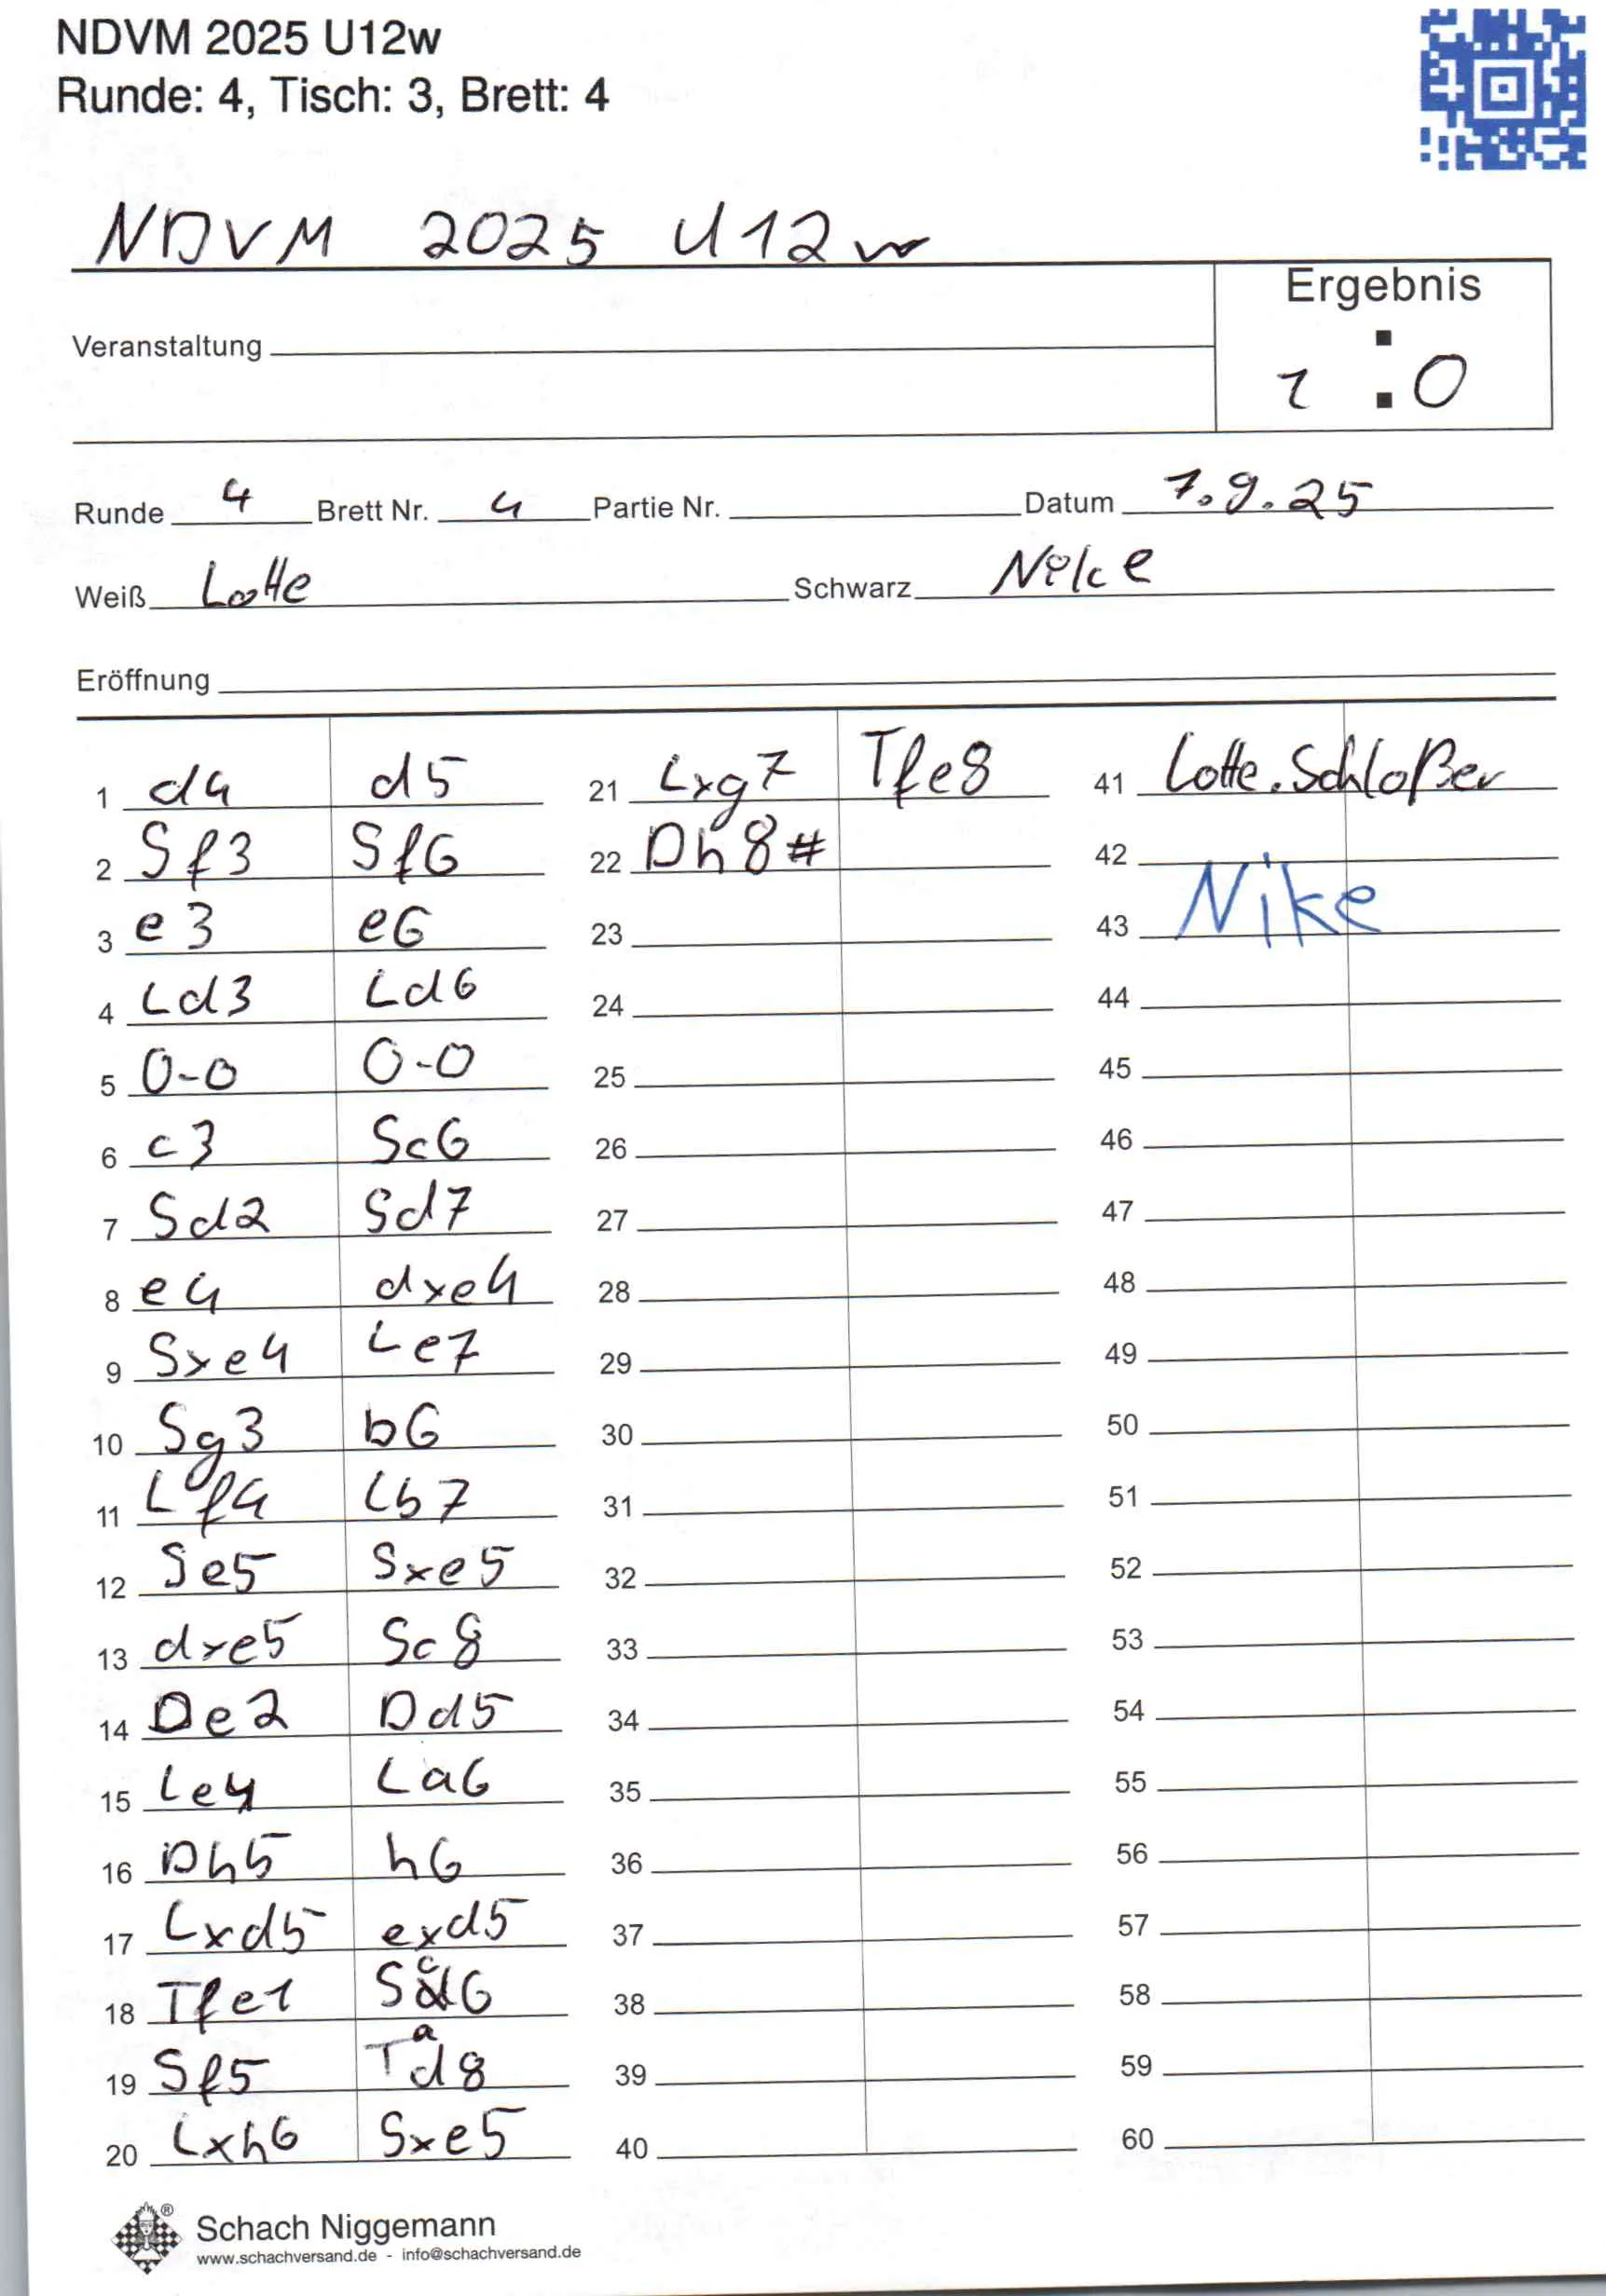 NDVM 2025 U12w
Runde: 4, Tisch: 3, Brett: 4
NDVM 2025 U12w
Ergebnis
Veranstaltung
1 : 0
Runde 4 Brett Nr. 4 Partie Nr. Datum 7.9.25
Weiß Lotte Schwarz Nike
Eröffnung
1 d4 d5
2 Sf3 Sf6
3 e3 e6
4 Ld3 Ld6
5 0-0 0-0
6 c3 Sc6
7 Sd2 Sd7
8 e4 dxe4
9 Sxe4 Le7
10 Sg3 b6
11 Lf4 Lb7
12 Se5 Sxe5
13 dxe5 Sc8
14 De2 Dd5
15 Le4 La6
16 Dh5 h6
17 Lxd5 exd5
18 Tfe1 Sc6
19 Sf5 Tad8
20 Lxh6 Sxe5
21 Lxg7 Tfe8
22 Dh8#
23
24
25
26
27
28
29
30
31
32
33
34
35
36
37
38
39
40
41 Lotte.Schloßer
42
43 Nike
44
45
46
47
48
49
50
51
52
53
54
55
56
57
58
59
60
Schach Niggemann ®
www.schachversand.de - info@schachversand.de